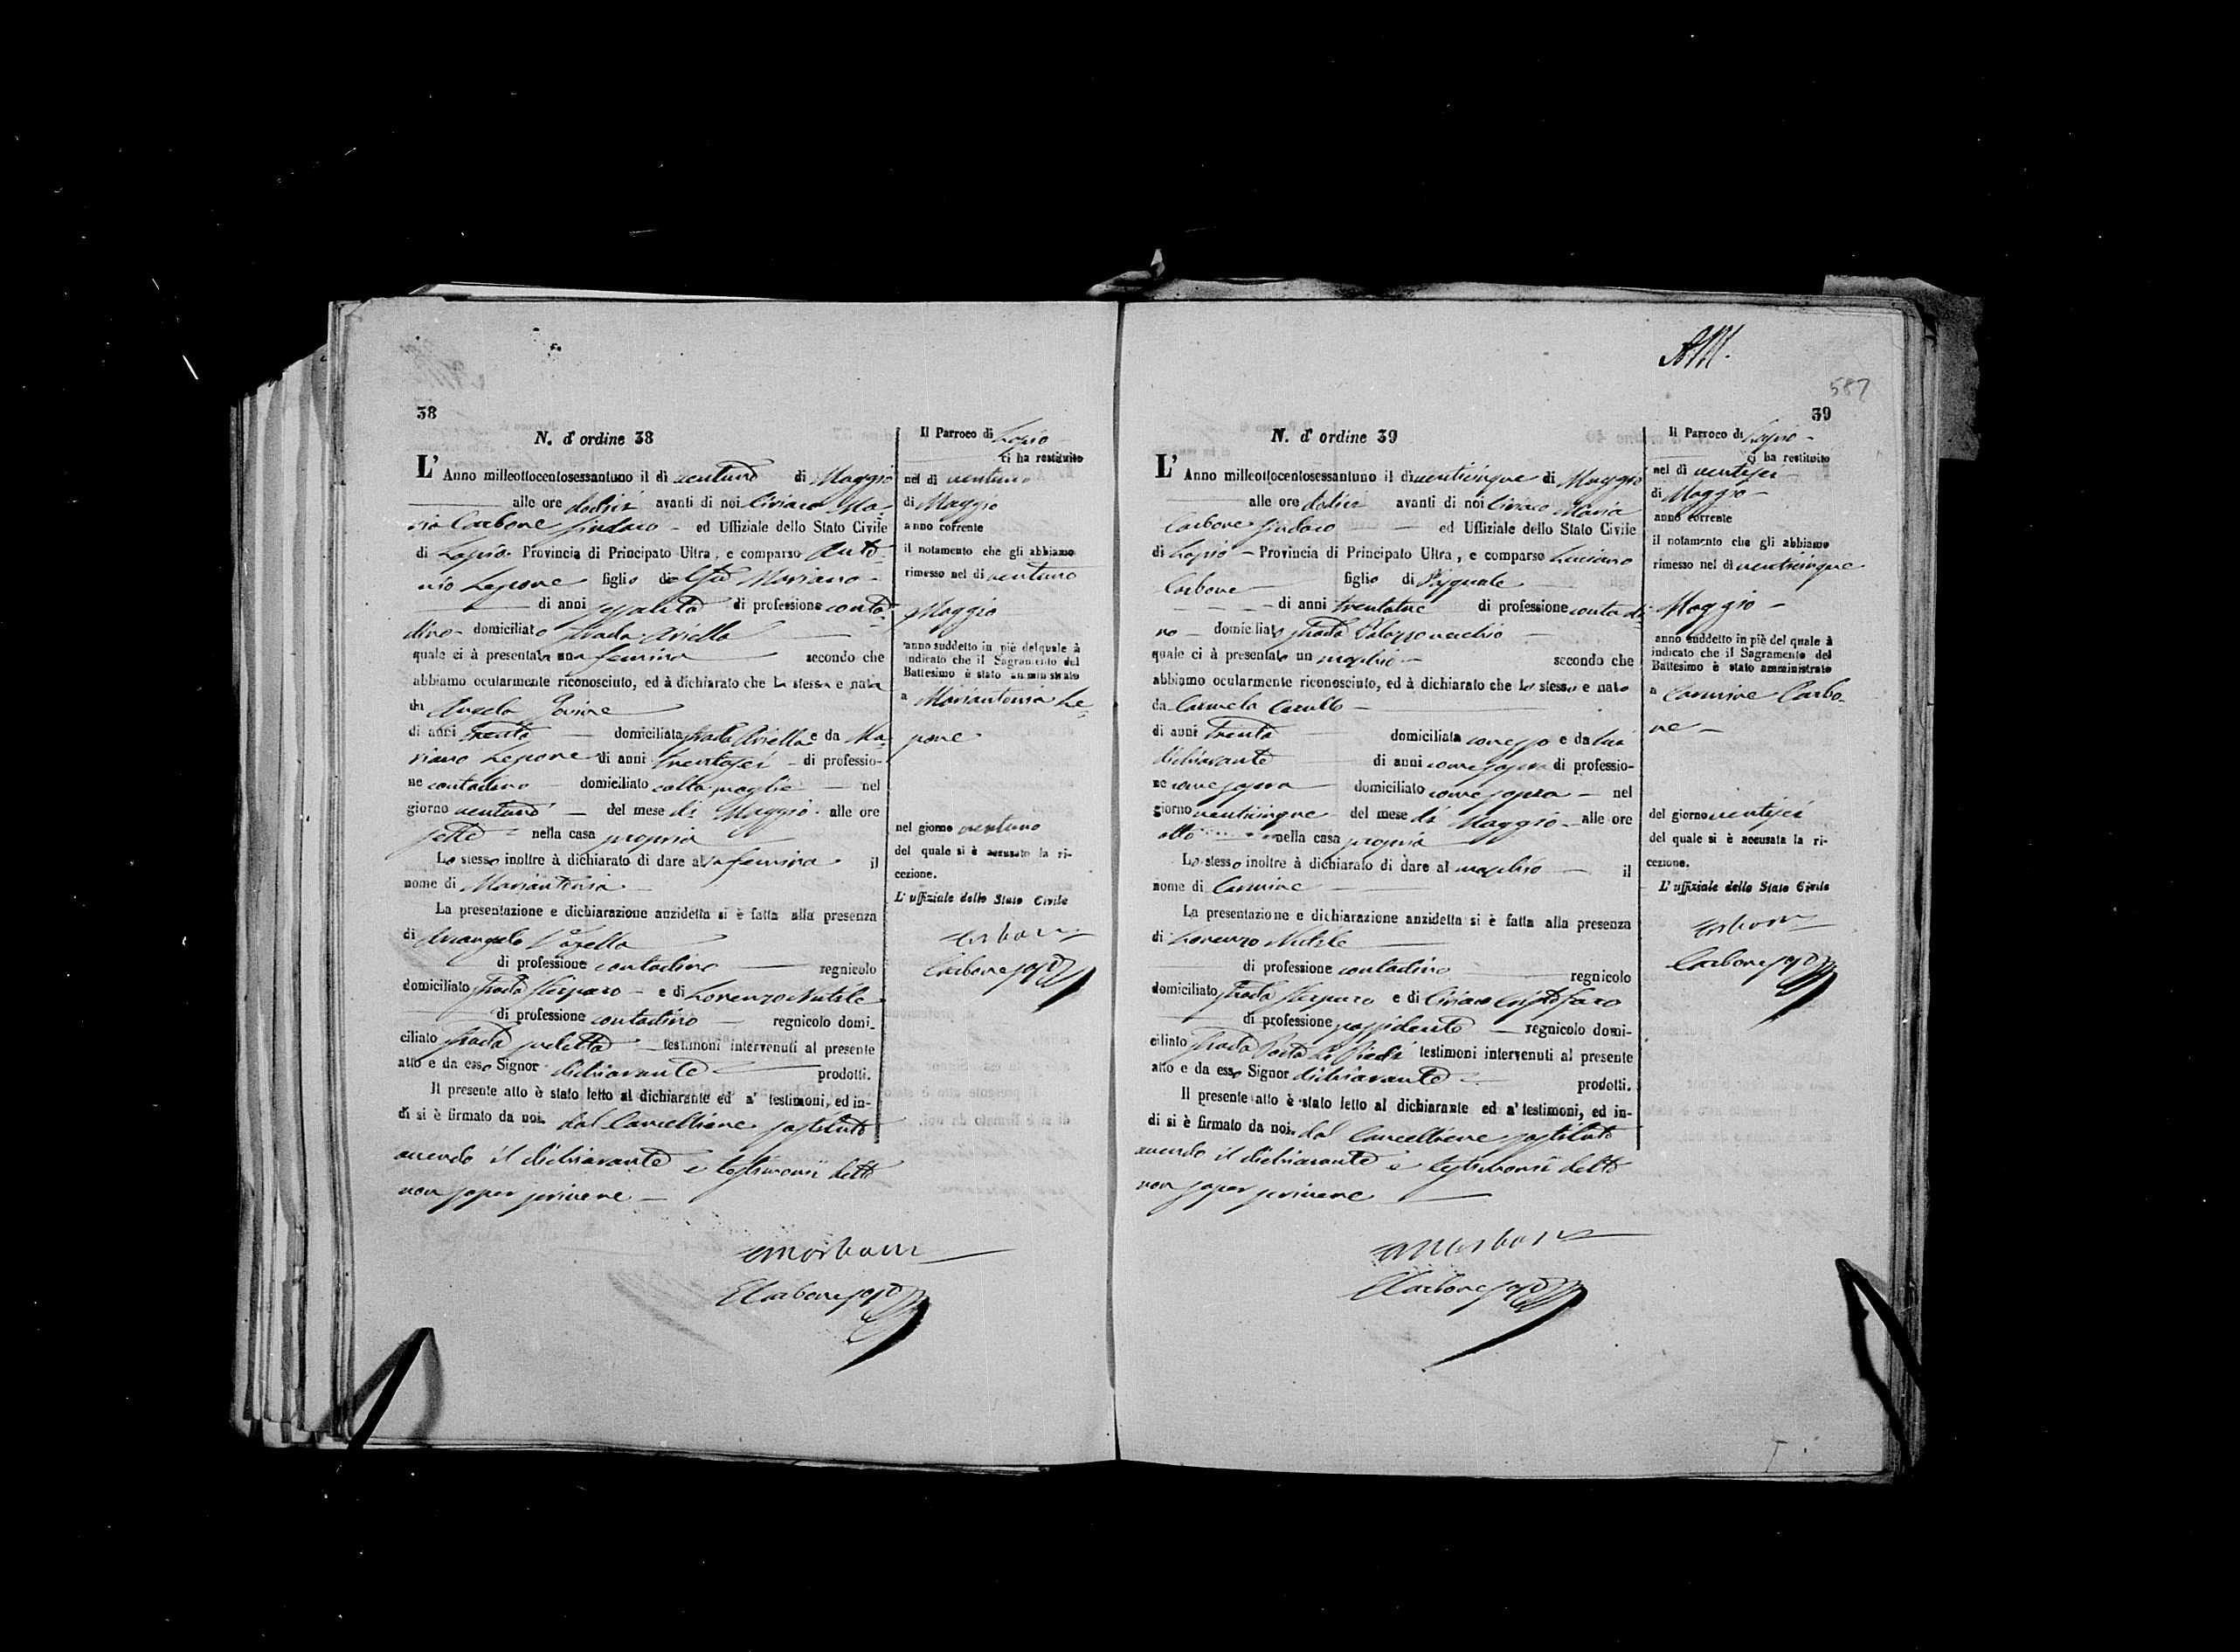 38
N. d' ordine 38
L' Anno milleottocentosessantuno il dì ventuno di Maggio
alle ore dodici avanti di noi Ciriaco Ma-
ria Carbone Sindaco - ed Uffiziale dello Stato Civile
di Lapio - Provincia di Principato Ultra, e comparso Anto-
nio Lepore figlio di Mariano -
di anni di professione conta-
dino - domiciliato strada Ariella
quale ci à presentata una femina secondo che
abbiamo ocularmente riconosciuto, ed à dichiarato che la stessa e nata
da Angela Iovine
di anni trenta domiciliata strada Ariella e da Ma-
riano Lepore di anni trentasei - di professio-
ne contadino - domiciliato colla moglie - nel
giorno ventuno - del mese di Maggio - alle ore
sette nella casa propria
Lo stesso inoltre à dichiarato di dare alla femina il
nome di Mariantonia -
La presentazione e dichiarazione anzidetta si è fatta alla presenza
di Arcangelo
di professione contadino regnicolo
domiciliato strada Sterparo - e di Lorenzo Nutile
di professione contadino - regnicolo domi-
ciliato strada sudetta - testimoni intervenuti al presente
atto e da esso Signor dichiarante prodotti.
Il presente atto è stato letto al dichiarante ed a' testimoni, ed in-
di si è firmato da noi. dal Cancelliere sostituto
avendo il dichiarante e testimonii detto
non saper scrivere -
Carbone
Il Parroco di Lapio
ci ha restituito
nel dì ventuno
di Maggio
anno corrente
il notamento che gli abbiamo
rimesso nel di ventuno
Maggio
anno suddetto in piè del quale à
indicato che il Sagramento del
Battesimo è stato amministrato
a Mariantonia Le-
pore
nel giorno ventuno
del quale si è accusato la ri-
cezione.
L' uffiziale dello Stato Civile
Carbone
587
39
N. d' ordine 39
L' Anno milleottocentosessantuno il dì venticinque di Maggio
alle ore dodici avanti di noi Ciriaco Maria
Carbone Sindaco - ed Uffiziale dello Stato Civile
di Lapio - Provincia di Principato Ultra, e comparso Luciano
Carbone figlio di Pasquale
di anni trentatre di professione contadi-
no - domiciliato strada Palazzovecchio -
quale ci à presentato un maschio - secondo che
abbiamo ocularmente riconosciuto, ed à dichiarato che lo stesso e nato
da Carmela Carullo -
di anni trenta domiciliata con esso e da lui
dichiarante di anni come sopra di professio-
ne come sopra domiciliato come sopra - nel
giorno venticinque - del mese di Maggio - alle ore
otto nella casa propria
Lo stesso inoltre à dichiarato di dare al maschio - il
nome di Carmine
La presentazione e dichiarazione anzidetta si è fatta alla presenza
di Lorenzo Nutile
di professione contadino regnicolo
domiciliato strada Sterparo e di Ciriaco Cristofaro
di professione possidente - regnicolo domi-
ciliato strada testimoni intervenuti al presente
atto e da esso Signor dichiarante prodotti.
Il presente atto è stato letto al dichiarante ed a' testimoni, ed in-
di si è firmato da noi. dal Cancelliere sostituto
avendo il dichiarante e testimonii detto
non saper scrivere
Carbone
Il Parroco di Lapio -
ci ha restituito
nel dì ventisei
di Maggio -
anno corrente
il notamento che gli abbiamo
rimesso nel di venticinque
Maggio -
anno suddetto in piè del quale à
indicato che il Sagramento del
Battesimo è stato amministrato
a Carmine Carbo-
ne -
del giorno ventisei
del quale si è accusata la ri-
cezione.
L' uffiziale dello Stato Civile
Carbone